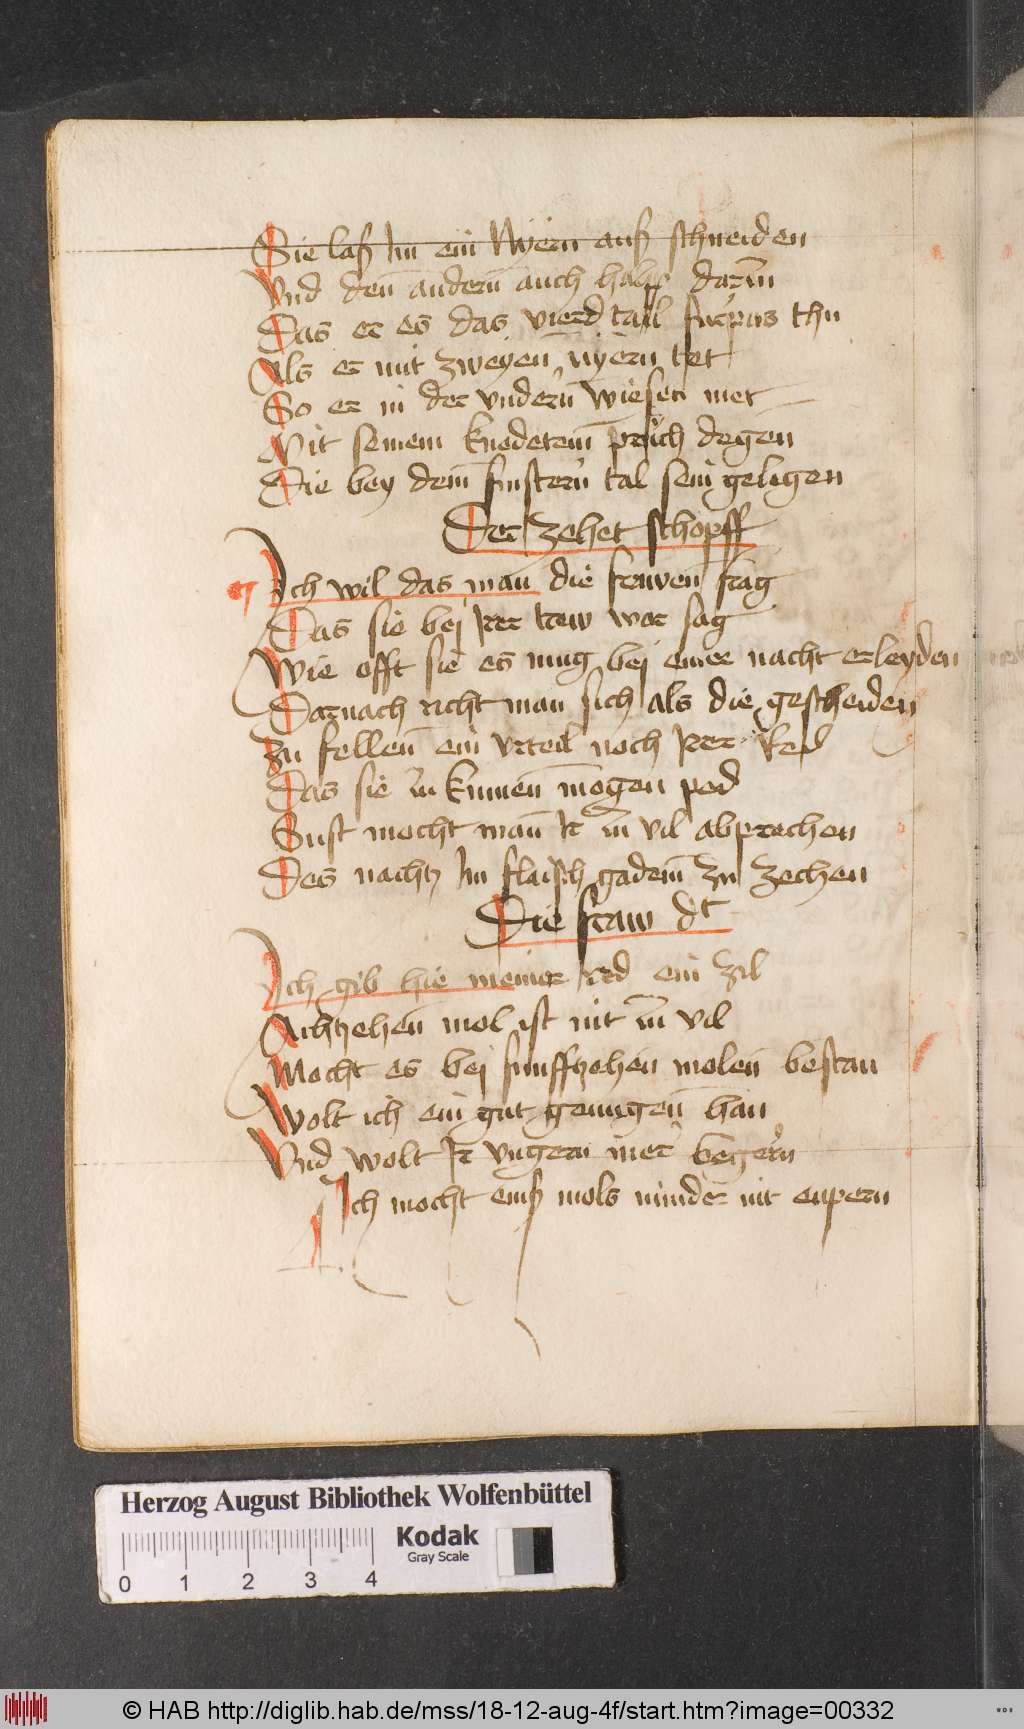 Sie laß Im ein Nÿern auß schneiden
Vnd den̄ andern̄ auch halp darin̄
Das er es das vierd tail furpas thu
Als er mit zweyen nÿern tet
So er in der vndern̄ wiesen met
Mit seinem knodetem̄ pruch degen
Die bey dem̄ finstern tal sein gelegen
Der zehet schopff
Ich wil das man die frawen frag
Das sie bei Irer trew wor sag
Wie offt sie es mug bei einer nacht erleyden
Darnach richt man sich als die gescheiden
Zu fellen̄ ein vrteil noch Irer Red
Das sie in kumen̄ mogen ped
Sust mocht man̄ Ir in̄ vil abprechen
Des nachtz Im flaisch gadem̄ zu zechen
Die fraw dt
Ich gib hie meiner red ein zil
Achtzehen̄ mol ist nit in̄ vil
Mocht es bei funffzehen molen̄ bestan
Wolt ich ein gut genugen̄ han
Vnd wolt Ir vngern mer begern
Ich mocht einß mols minder nit enpern
Herzog August Bibliothek Wolfenbüttel
Kodak
Gray Scale
0 1 2 3 4
© HAB http://diglib.hab.de/mss/18-12-aug-4f/start.htm?image=00332